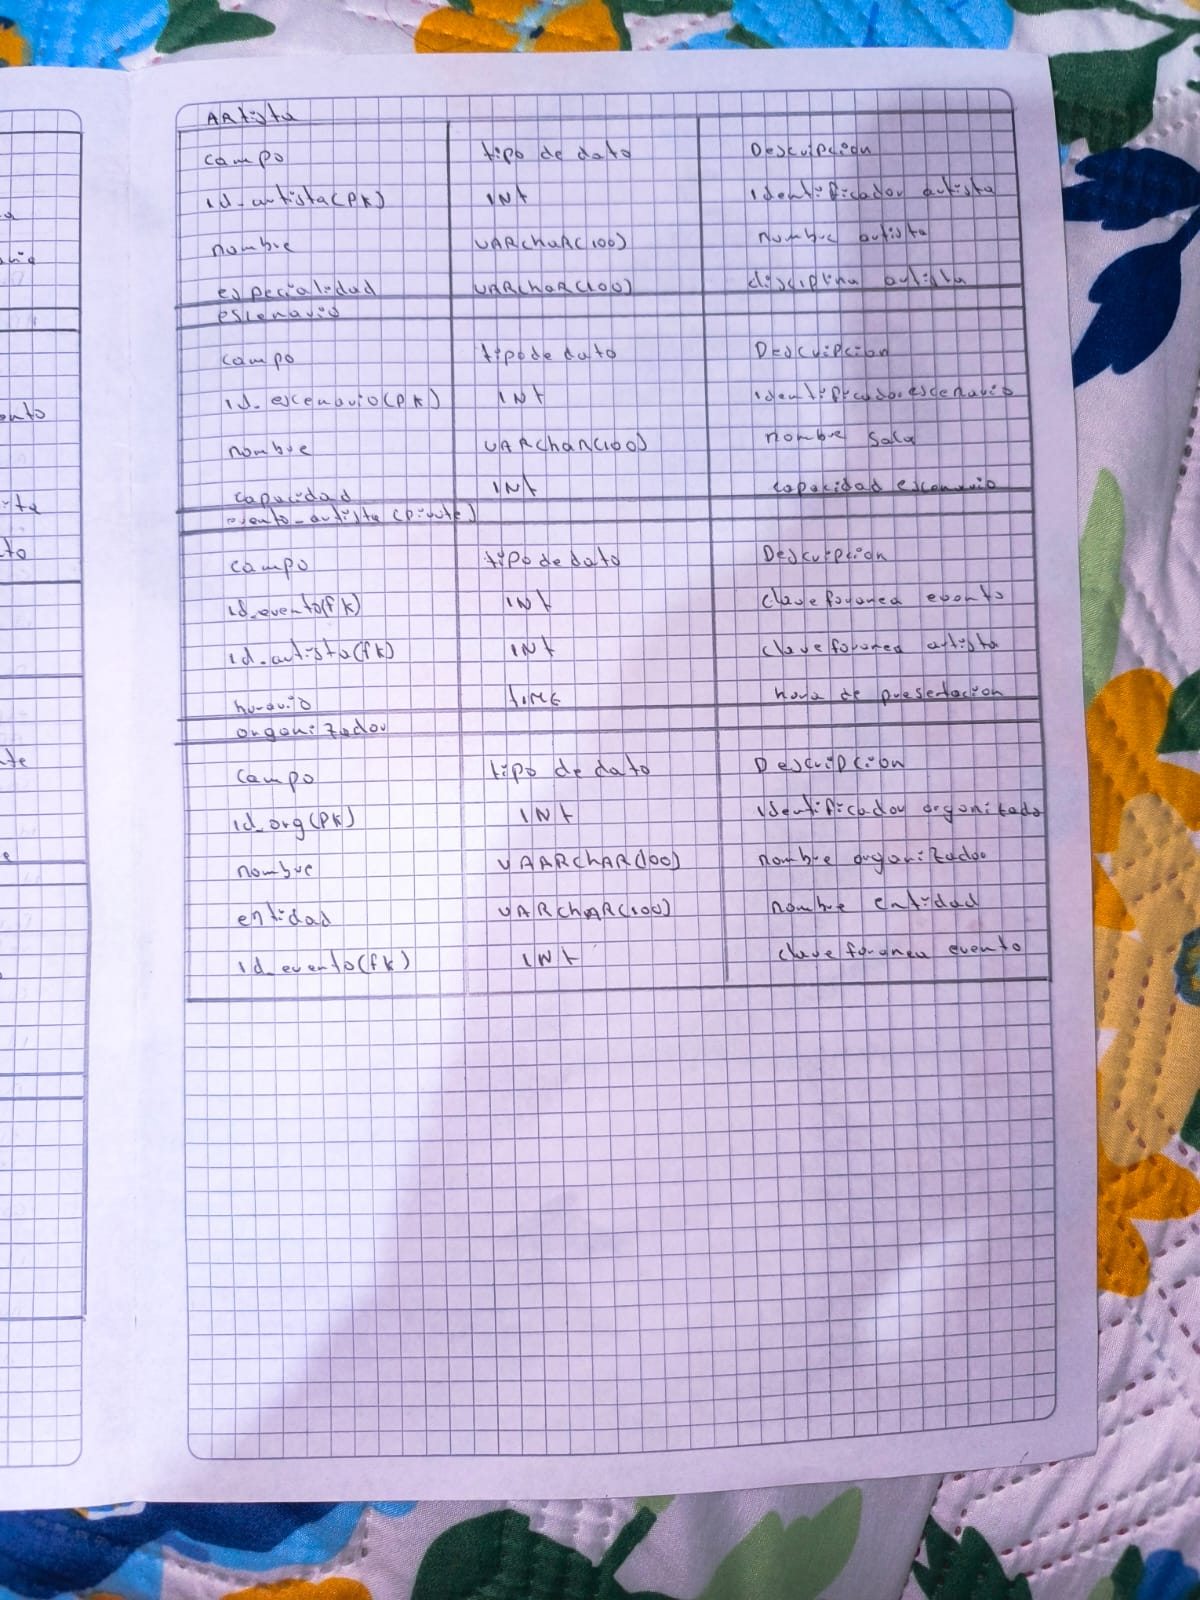 ARtista
campo tipo de dato Descripcion
id_artista(PK) INt identificador artista
nombre VARchaR(100) nombre artista
especialidad VARchaR(100) disciplina artista
escenario
campo tipo de dato Descripcion
id_escenario(PK) INt identificador escenario
nombre VARchaR(100) nombre sala
capacidad INt capacidad escenario
evento_artista (pivote)
campo tipo de dato Descripcion
id_evento(fk) INt clave foranea evento
id_artista(fk) INt clave foranea artista
horario time hora de presentacion
organizador
campo tipo de dato Descripcion
id_org(PK) INt identificador organizado
nombre VAARchAR(100) nombre organizador
entidad VARchAR(100) nombre entidad
id_evento(fk) INt clave foranea evento